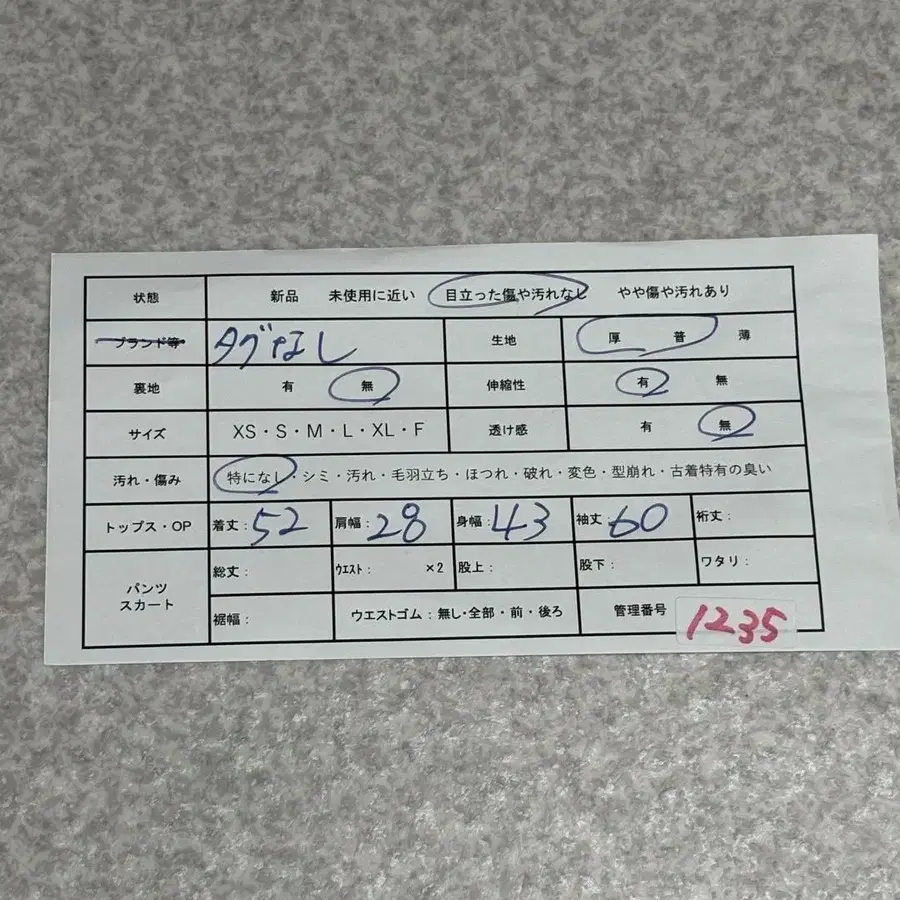 状態 新品 未使用に近い 目立った傷や汚れなし やや傷や汚れあり
ブランド等 タグなし 生地 厚 普 薄
裏地 有 無 伸縮性 有 無
サイズ XS・S・M・L・XL・F 透け感 有 無
汚れ・傷み 特になし・シミ・汚れ・毛羽立ち・ほつれ・破れ・変色・型崩れ・古着特有の臭い
トップス・OP 着丈:52 肩幅:28 身幅:43 袖丈:60 裄丈:
パンツ
スカート
総丈: ウエスト: ×2 股上: 股下: ワタリ:
裾幅: ウエストゴム:無し・全部・前・後ろ 管理番号 1235